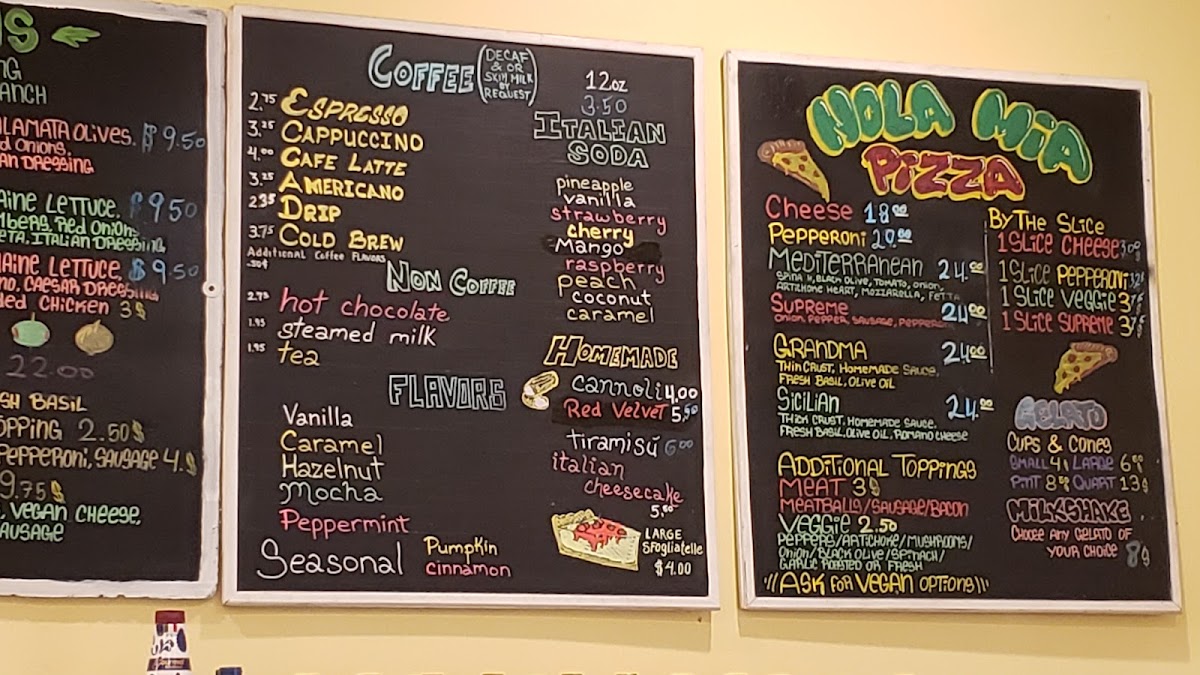 NG
ANCH
LAMATA OLIVES. $9.50
d ONIONS.
AN DRESSING
AINE LETTUCE. $950
MBERS, RED ONIONS
ETA, ITALIAN DRESSING
AINE LETTUCE. $9.50
NO, CAESAR DRESSING
ded CHICKEN 3$
22.00
SH BASIL
OPPING 2.50$
PEPPERONI, SAUSAGE 4.$
9.75$
, VEGAN CHEESE,
AUSAGE
COFFEE (DECAF & OR SKIM MILK BY REQUEST)
2.75 ESPRESSO
3.25 CAPPUCCINO
4.00 CAFE LATTE
3.25 AMERICANO
2.35 DRIP
3.75 COLD BREW
Additional Coffee Flavors
.50¢
NON COFFEE
2.75 hot chocolate
1.95 steamed milk
1.95 tea
FLAVORS
Vanilla
Caramel
Hazelnut
Mocha
Peppermint
Seasonal Pumpkin
cinnamon
12oz
3.50
ITALIAN
SODA
pineapple
vanilla
strawberry
cherry
Mango
raspberry
peach
coconut
caramel
HOMEMADE
cannoli 4,00
Red Velvet 5,50
tiramisú 6.00
italian
cheesecake
5,50
LARGE
SFOGLIATELLE
$4.00
NOLA MIA
PIZZA
Cheese 18.00
Pepperoni 20.00
MEDITERRANEAN 24.00
BLACK OLIVE, TOMATO, ONION,
ARTICHOKE HEART, MOZZARELLA, FETTA
SUPREME 24.00
ONION, PEPPER, SAUSAGE, PEPPERONI
GRANDMA 24.00
THIN CRUST, HOMEMADE SAUCE,
FRESH BASIL, OLIVE OIL
SICILIAN 24.00
THICK CRUST, HOMEMADE SAUCE.
FRESH BASIL, OLIVE OIL, ROMANO CHEESE
ADDITIONAL TOPPINGS
MEAT 3$
MEATBALLS/SAUSAGE/BACON
VEGGIE 2.50
PEPPERS/ARTICHOKE/MUSHROOMS/
ONION/BLACK OLIVE/SPINACH/
GARLIC ROASTED OR FRESH
"ASK FOR VEGAN OPTIONS"
BY THE SLICE
1 SLICE CHEESE 3.00
1 SLICE PEPPERONI 3.25
1 SLICE VEGGIE 3.75
1 SLICE SUPREME 3.75
GELATO
CUPS & CONES
SMALL 4$ LARGE 6
PINT 8 QUART 13$
MILKSHAKE
CHOOSE ANY GELATO OF
YOUR CHOICE 8$